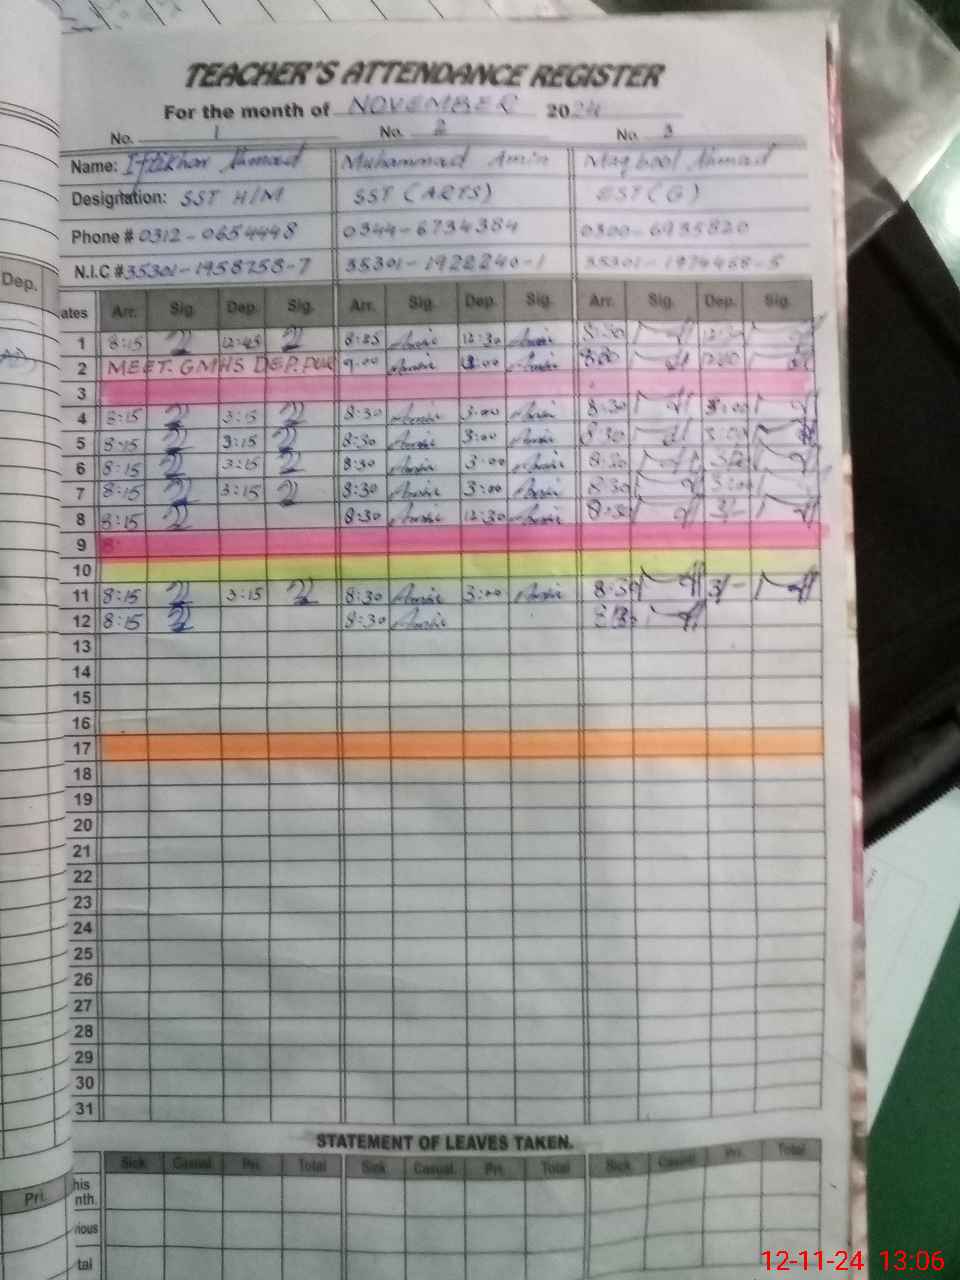 TEACHER'S ATTENDANCE REGISTER
For the month of NOVEMBER 2024
No. 1 No. 2 No. 3
Name: Iftikhar Ahmad Muhammad Amin Maqbool Ahmad
Designation: SST H/M SST (ARTS) EST (G)
Phone # 0312-0654498 0344-6734384 0300-6935820
Dep. N.I.C # 35301-1958258-7 35301-1922240-1 35301-1974468-5
ates Arr. Sig. Dep. Sig. Arr. Sig. Dep. Sig. Arr. Sig. Dep. Sig.
1 8:15 12:45 8:25 Amin 12:30 Amin 8:30
2 MEET. GMHS DEP. 9:00 Amin Amin
3
4 8:15 3:15 8:30 Amin 3:00 Amin 8:30 3:00
5 8:15 3:15 8:30 Amin 3:00 Amin 8:30 3:00
6 8:15 3:15 8:30 Amin 3:00 Amin 8:30
7 8:15 3:15 8:30 Amin 3:00 Amin 8:30 3:00
8 8:15 8:30 Amin 12:30 Amin 8:30 3/-
9 8
10
11 8:15 3:15 8:30 Amin 3:00 Amin 8:30 3/-
12 8:15 8:30 Amin
13
14
15
16
17
18
19
20
21
22
23
24
25
26
27
28
29
30
31
STATEMENT OF LEAVES TAKEN.
Sick Casual. Pri. Total Sick Casual. Pri. Total Sick Casual Pri. Total
Pri. his
nth.
rious
tal
12-11-24 13:06